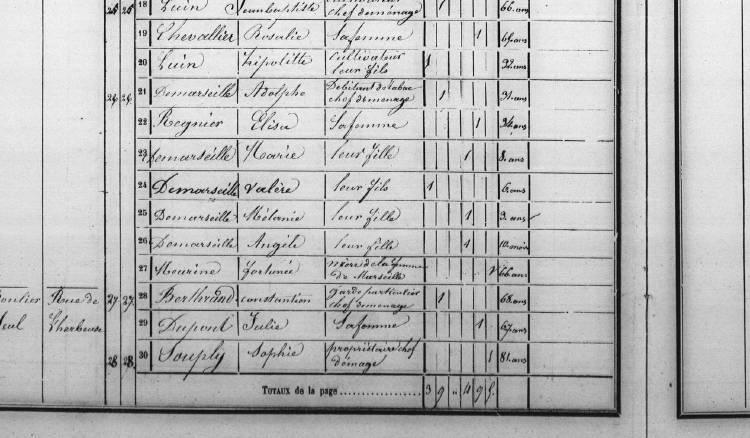 25 25 18 Luin Jean baptiste chef de ménage 1 66 ans
19 Chevallier Rosalie Sa femme 1 ans
20 Luin hipolitte Cultivateur leur fils 1 32 ans
26 26 21 Demarseille Adolphe Débitant de tabac chef de ménage 1 31 ans
22 Regnier Elisa Sa femme 1 34 ans
23 Demarseille Marie leur fille 1 8 ans
24 Demarseille Valère leur fils 1 6 ans
25 Demarseille Mélanie leur fille 1 3 ans
26 Demarseille Angèle leur fille 1 10 mois
27 Fortunée mère de la femme de Marseille 66 ans
Rue de 27 27 28 Berthrand constantien garde particulier chef de ménage 1 68 ans
Lherbeuse 29 Dupont Julie Sa femme 1 67 ans
28 28 30 Souply Sophie propriétaire chef démage 1 81 ans
TOTAUX de la page 3 9 " 4 9 5